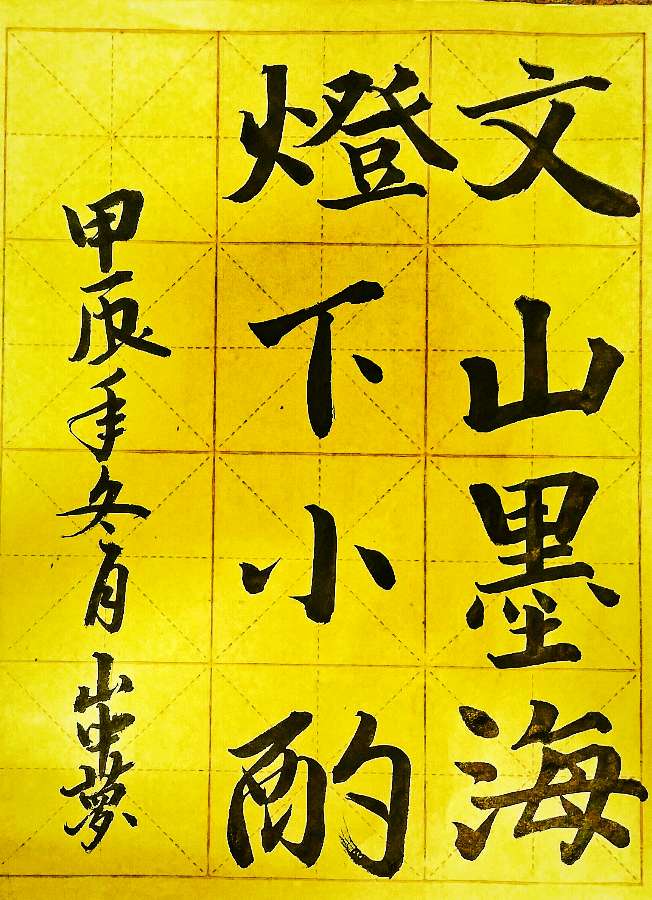 文山墨海
燈下小酌
甲辰年冬月山中夢